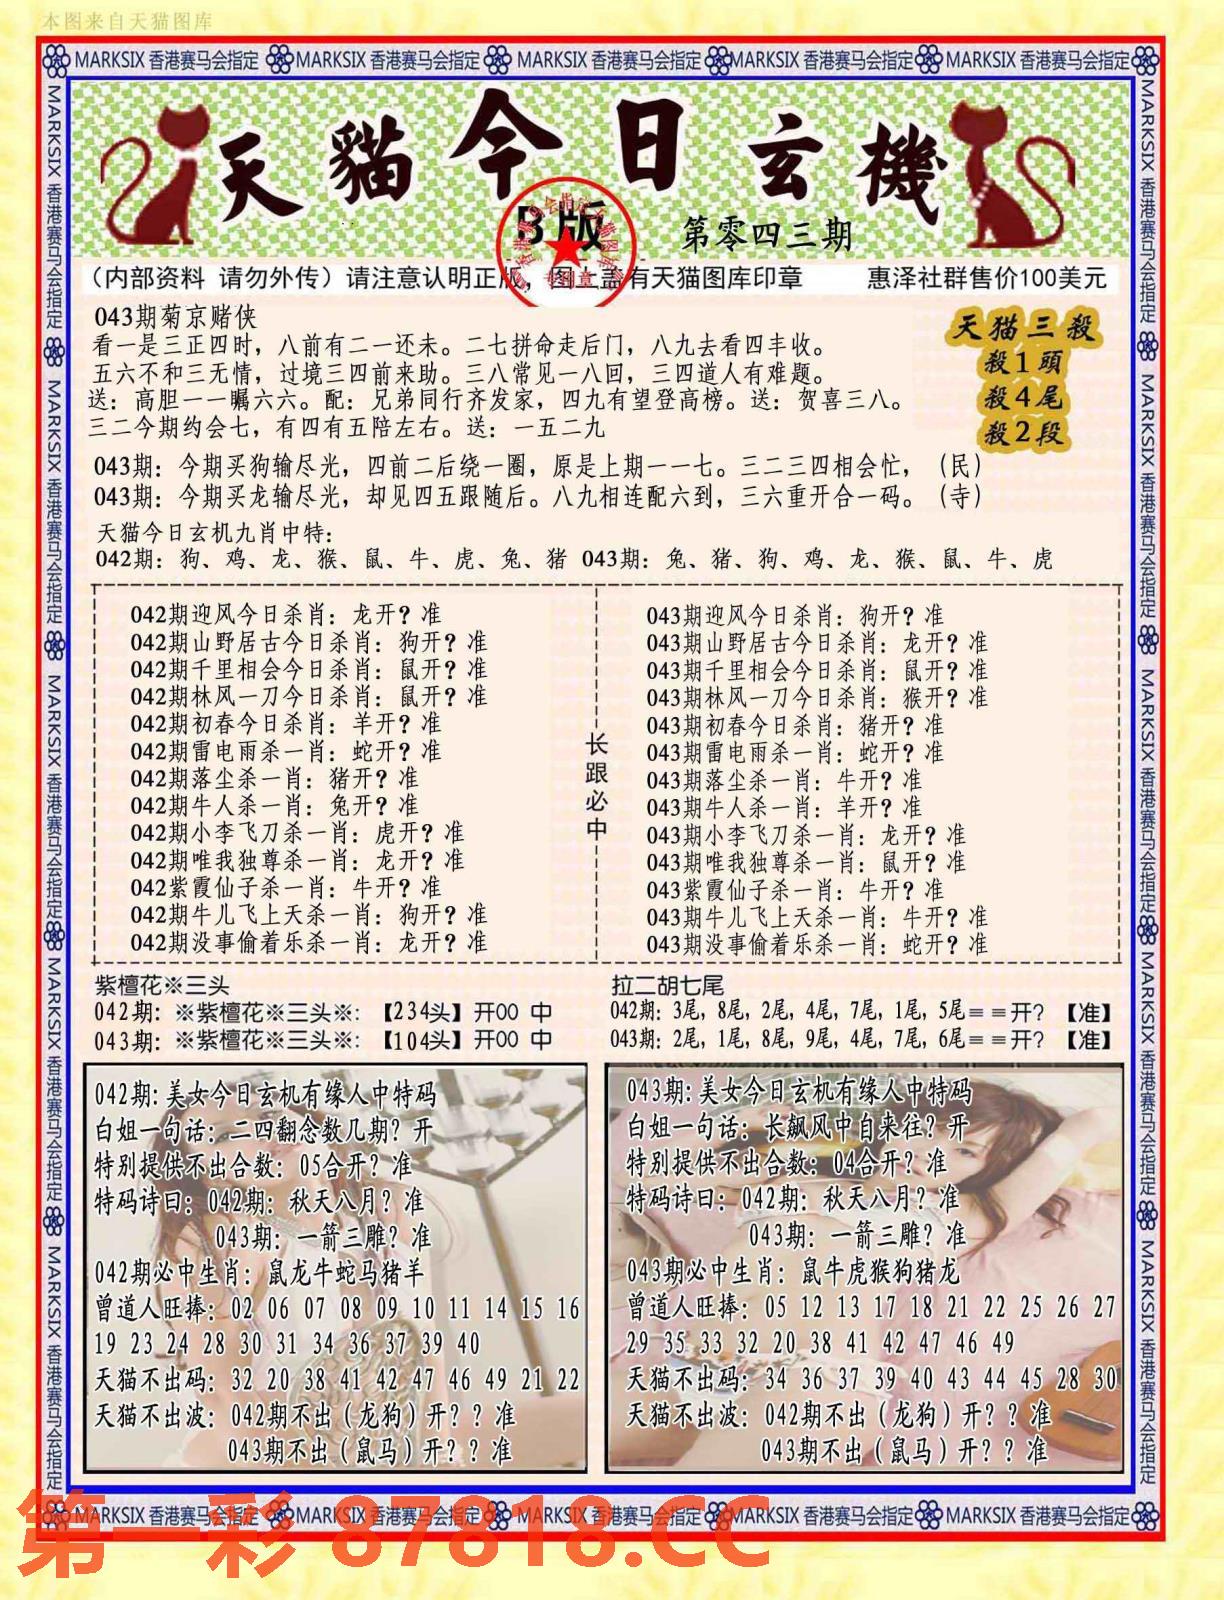 本图来自天猫图库
MARKSIX 香港赛马会指定 MARKSIX 香港赛马会指定 MARKSIX 香港赛马会指定 MARKSIX 香港赛马会指定 MARKSIX 香港赛马会指定
MARKSIX 香港赛马会指定 MARKSIX 香港赛马会指定 MARKSIX 香港赛马会指定 MARKSIX 香港赛马会指定 MARKSIX 香港赛马会指定
天貓今日玄機
B版
第零四三期
专用章
（内部资料 请勿外传）请注意认明正版，图上盖有天猫图库印章 惠泽社群售价100美元
043期菊京赌侠
看一是三正四时，八前有二一还未。二七拼命走后门，八九去看四丰收。
五六不和三无情，过境三四前来助。三八常见一八回，三四道人有难题。
送：高胆一一瞩六六。配：兄弟同行齐发家，四九有望登高榜。送：贺喜三八。
三二今期约会七，有四有五陪左右。送：一五二九
天猫三殺
殺1頭
殺4尾
殺2段
043期：今期买狗输尽光，四前二后绕一圈，原是上期一一七。三二三四相会忙，（民）
043期：今期买龙输尽光，却见四五跟随后。八九相连配六到，三六重开合一码。（寺）
天猫今日玄机九肖中特：
042期：狗、鸡、龙、猴、鼠、牛、虎、兔、猪 043期：兔、猪、狗、鸡、龙、猴、鼠、牛、虎
042期迎风今日杀肖：龙开？准
042期山野居古今日杀肖：狗开？准
042期千里相会今日杀肖：鼠开？准
042期林风一刀今日杀肖：鼠开？准
042期初春今日杀肖：羊开？准
042期雷电雨杀一肖：蛇开？准
042期落尘杀一肖：猪开？准
042期牛人杀一肖：兔开？准
042期小李飞刀杀一肖：虎开？准
042期唯我独尊杀一肖：龙开？准
042紫霞仙子杀一肖：牛开？准
042期牛儿飞上天杀一肖：狗开？准
042期没事偷着乐杀一肖：龙开？准
长跟必中
043期迎风今日杀肖：狗开？准
043期山野居古今日杀肖：龙开？准
043期千里相会今日杀肖：鼠开？准
043期林风一刀今日杀肖：猴开？准
043期初春今日杀肖：猪开？准
043期雷电雨杀一肖：蛇开？准
043期落尘杀一肖：牛开？准
043期牛人杀一肖：羊开？准
043期小李飞刀杀一肖：龙开？准
043期唯我独尊杀一肖：鼠开？准
043紫霞仙子杀一肖：牛开？准
043期牛儿飞上天杀一肖：牛开？准
043期没事偷着乐杀一肖：蛇开？准
紫檀花※三头
042期：※紫檀花※三头※：【234头】开00 中
043期：※紫檀花※三头※：【104头】开00 中
拉二胡七尾
042期：3尾，8尾，2尾，4尾，7尾，1尾，5尾＝＝开？【准】
043期：2尾，1尾，8尾，9尾，4尾，7尾，6尾＝＝开？【准】
042期：美女今日玄机有缘人中特码
白姐一句话：二四翻念数几期？开
特别提供不出合数：05合开？准
特码诗曰：042期：秋天八月？准
043期：一箭三雕？准
042期必中生肖：鼠龙牛蛇马猪羊
曾道人旺捧：02 06 07 08 09 10 11 14 15 16
19 23 24 28 30 31 34 36 37 39 40
天猫不出码：32 20 38 41 42 47 46 49 21 22
天猫不出波：042期不出（龙狗）开？？准
043期不出（鼠马）开？？准
043期：美女今日玄机有缘人中特码
白姐一句话：长飙风中自来往？开
特别提供不出合数：04合开？准
特码诗曰：042期：秋天八月？准
043期：一箭三雕？准
043期必中生肖：鼠牛虎猴狗猪龙
曾道人旺捧：05 12 13 17 18 21 22 25 26 27
29 35 33 32 20 38 41 42 47 46 49
天猫不出码：34 36 37 39 40 43 44 45 28 30
天猫不出波：042期不出（龙狗）开？？准
043期不出（鼠马）开？？准
MARKSIX 香港赛马会指定 MARKSIX 香港赛马会指定 MARKSIX 香港赛马会指定 MARKSIX 香港赛马会指定 MARKSIX 香港赛马会指定
MARKSIX 香港赛马会指定 MARKSIX 香港赛马会指定 MARKSIX 香港赛马会指定 MARKSIX 香港赛马会指定 MARKSIX 香港赛马会指定
第一彩 87818.CC